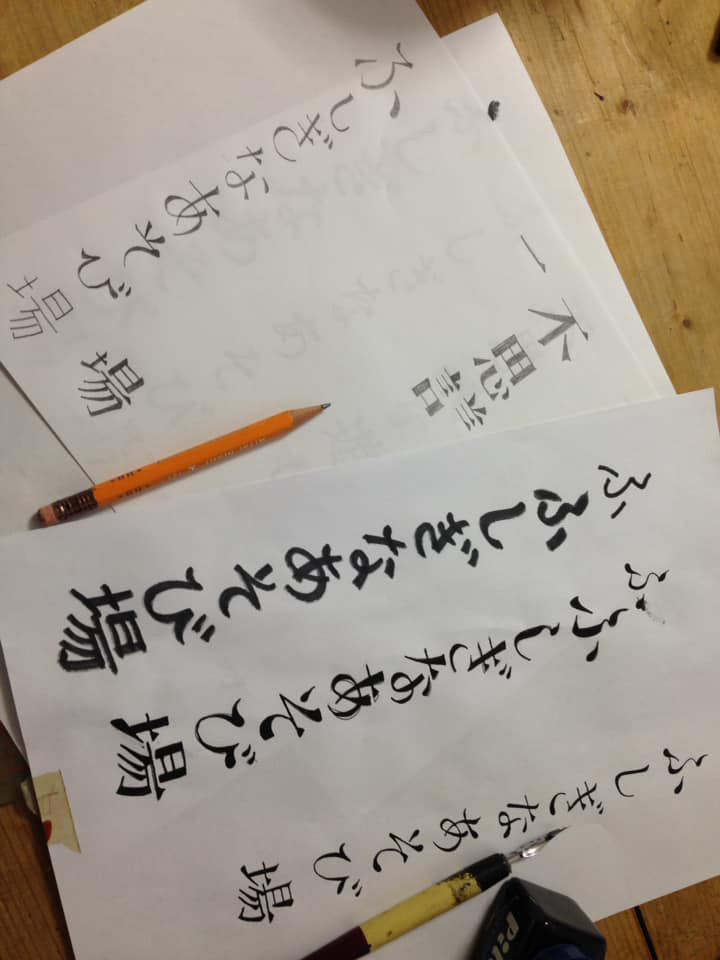 ふしぎなあそび場
場
一
不思
ふふしぎなあそび場
ふふしぎなあそび場
ふしぎなあそび場